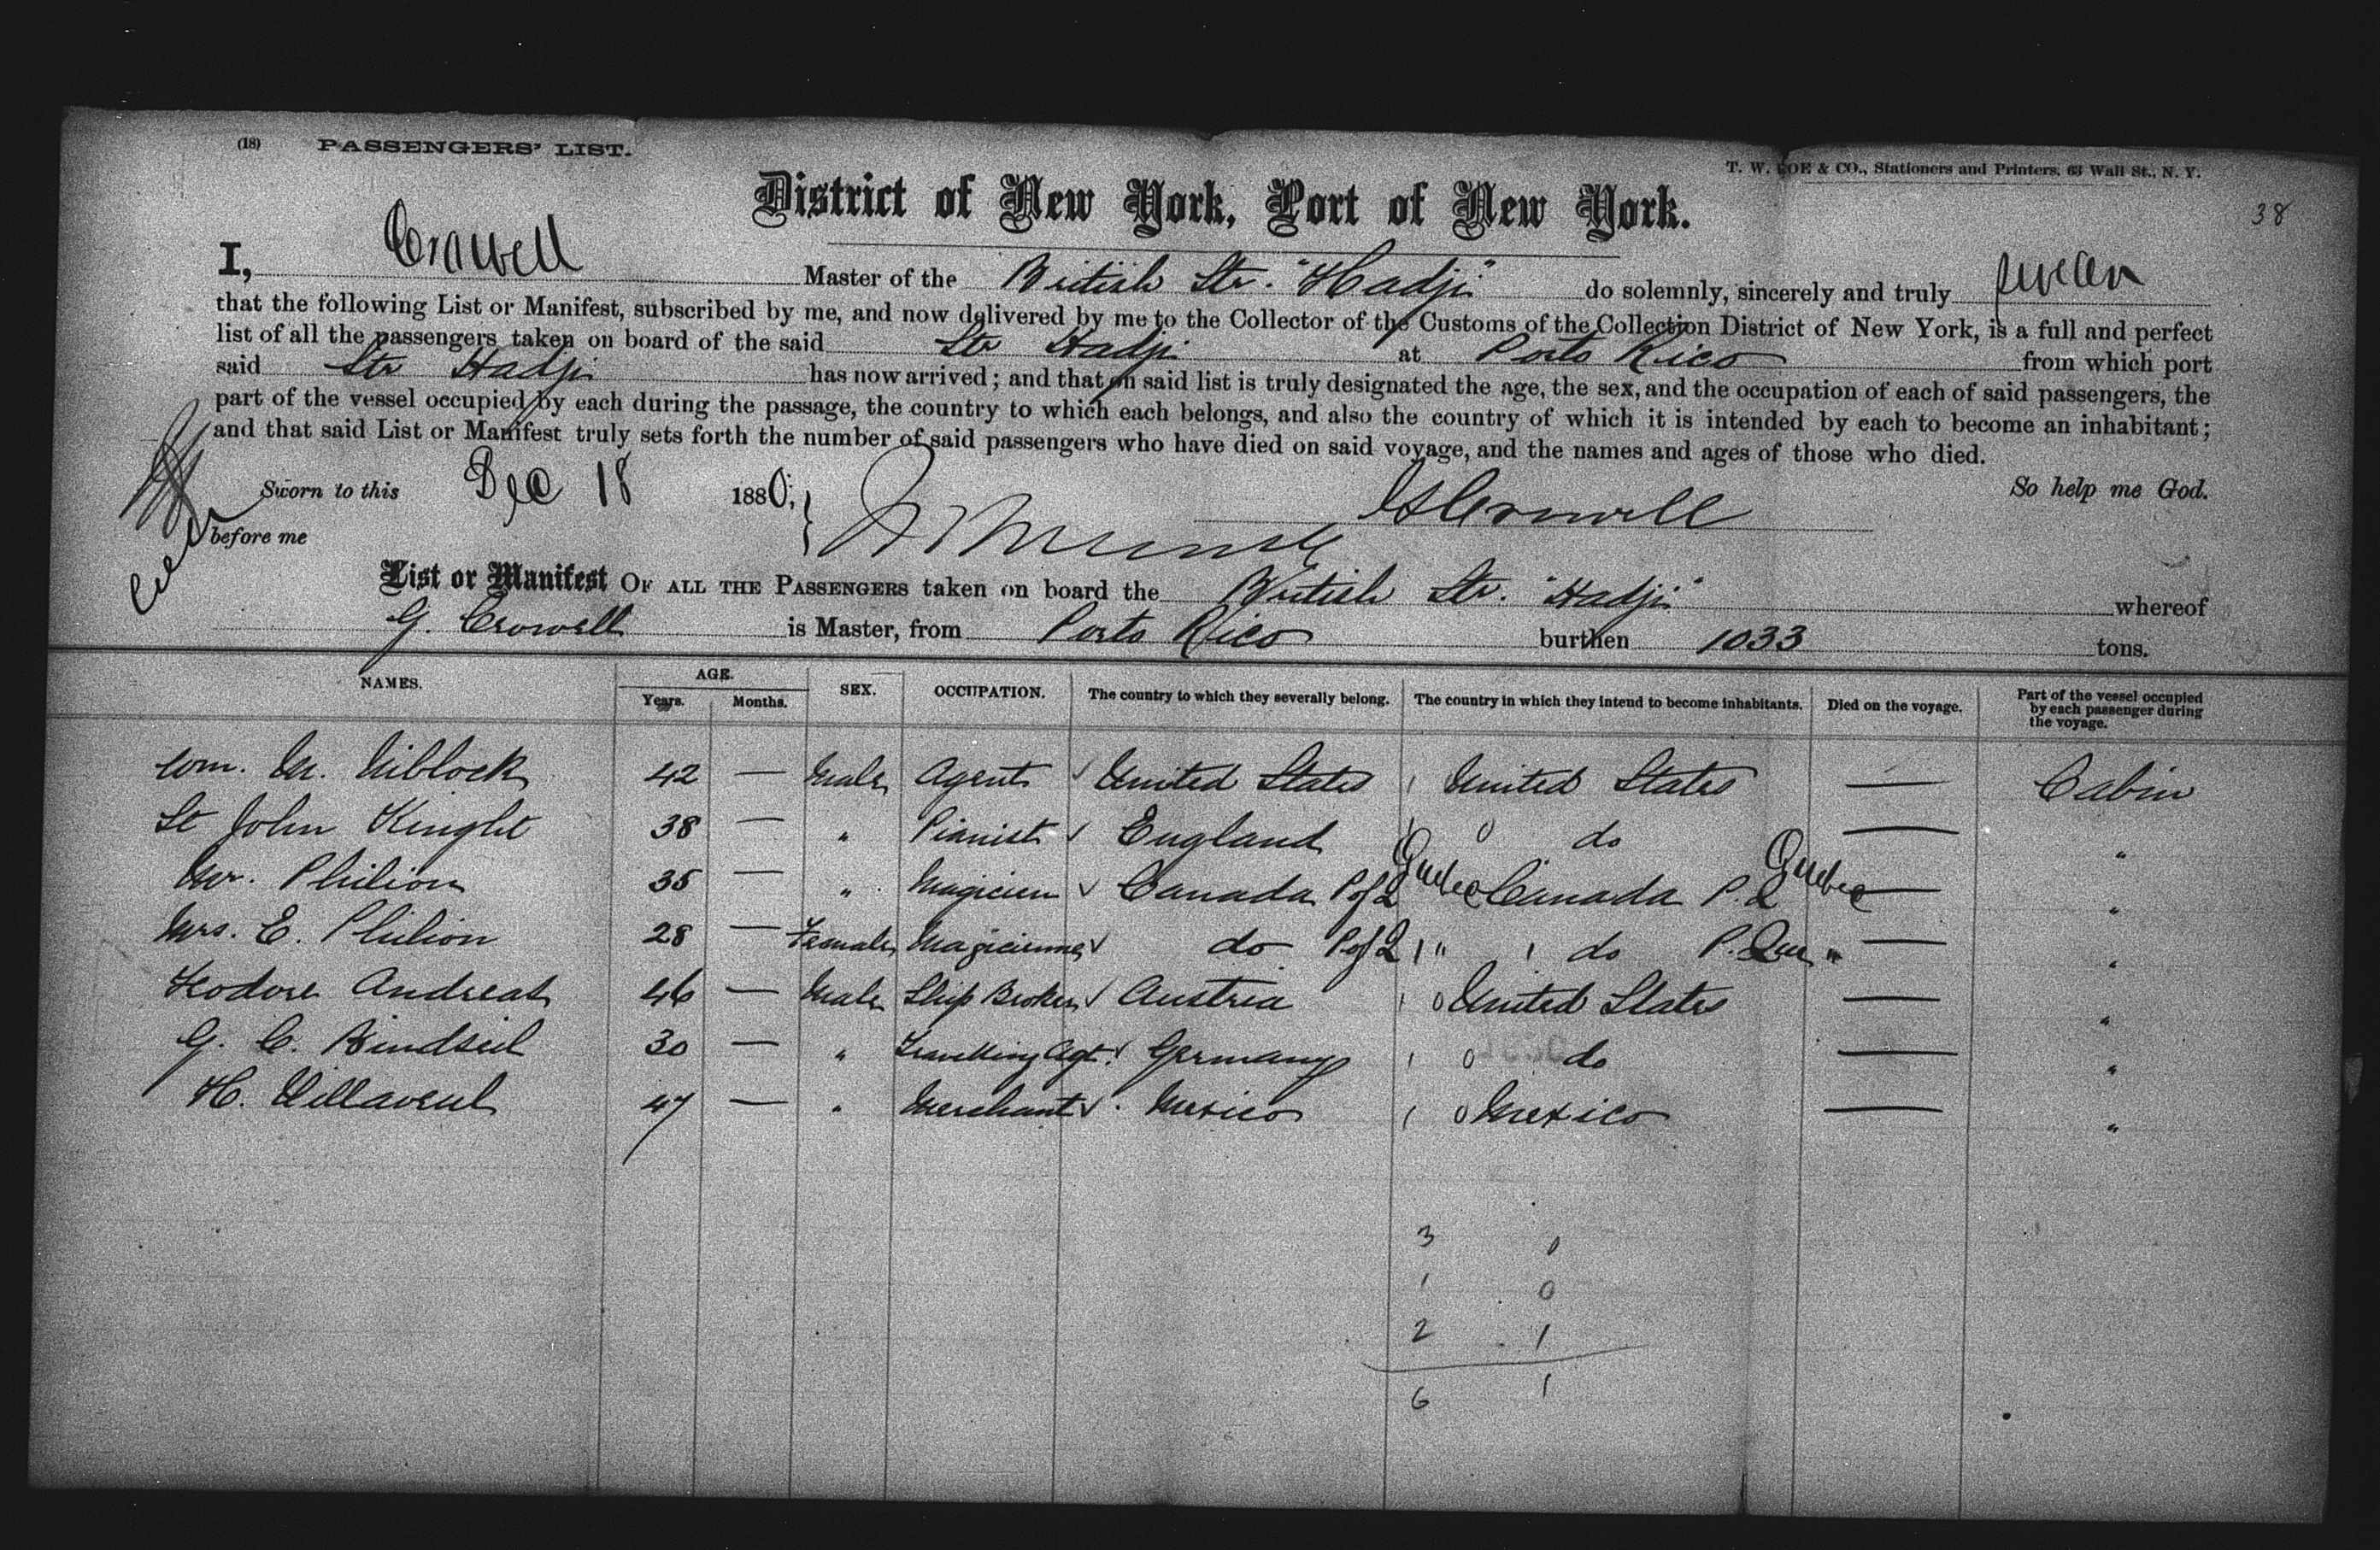 (18) PASSENGERS' LIST.
T. W. & CO., Stationers and Printers, 63 Wall St., N. Y.
District of New York, Port of New York.
38
I, Crowell Master of the British Str. "Hadji" do solemnly, sincerely and truly swear
that the following List or Manifest, subscribed by me, and now delivered by me to the Collector of the Customs of the Collection District of New York, is a full and perfect
list of all the passengers taken on board of the said Str Hadji at Porto Rico from which port
said Str Hadji has now arrived; and that on said list is truly designated the age, the sex, and the occupation of each of said passengers, the
part of the vessel occupied by each during the passage, the country to which each belongs, and also the country of which it is intended by each to become an inhabitant;
and that said List or Manifest truly sets forth the number of said passengers who have died on said voyage, and the names and ages of those who died.
Sworn to this Dec 18 1880; So help me God.
before me Crowell
List or Manifest OF ALL THE PASSENGERS taken on board the British Str. "Hadji" whereof
G. Crowell is Master, from Porto Rico burthen 1033 tons.
NAMES. AGE. Years. Months. SEX. OCCUPATION. The country to which they severally belong. The country in which they intend to become inhabitants. Died on the voyage. Part of the vessel occupied by each passenger during the voyage.
Wm. M. Niblock 42 — Male Agent United States United States — Cabin
St John Knight 38 — " Pianist England do — "
Mr. Philion 35 — " Magicien Canada P of Q Quebec Canada P. Q Quebec — "
Mrs. E. Philion 28 — Female Magicienne do P of Q " do P. Que " — "
Teodore Andreas 46 — Male Ship Broker Austria United States — "
G. C. Bindseil 30 — " Travelling Agt. Germany do — "
H. 47 — " Merchant Mexico Mexico — "
3 0
1 0
2 1
6 1